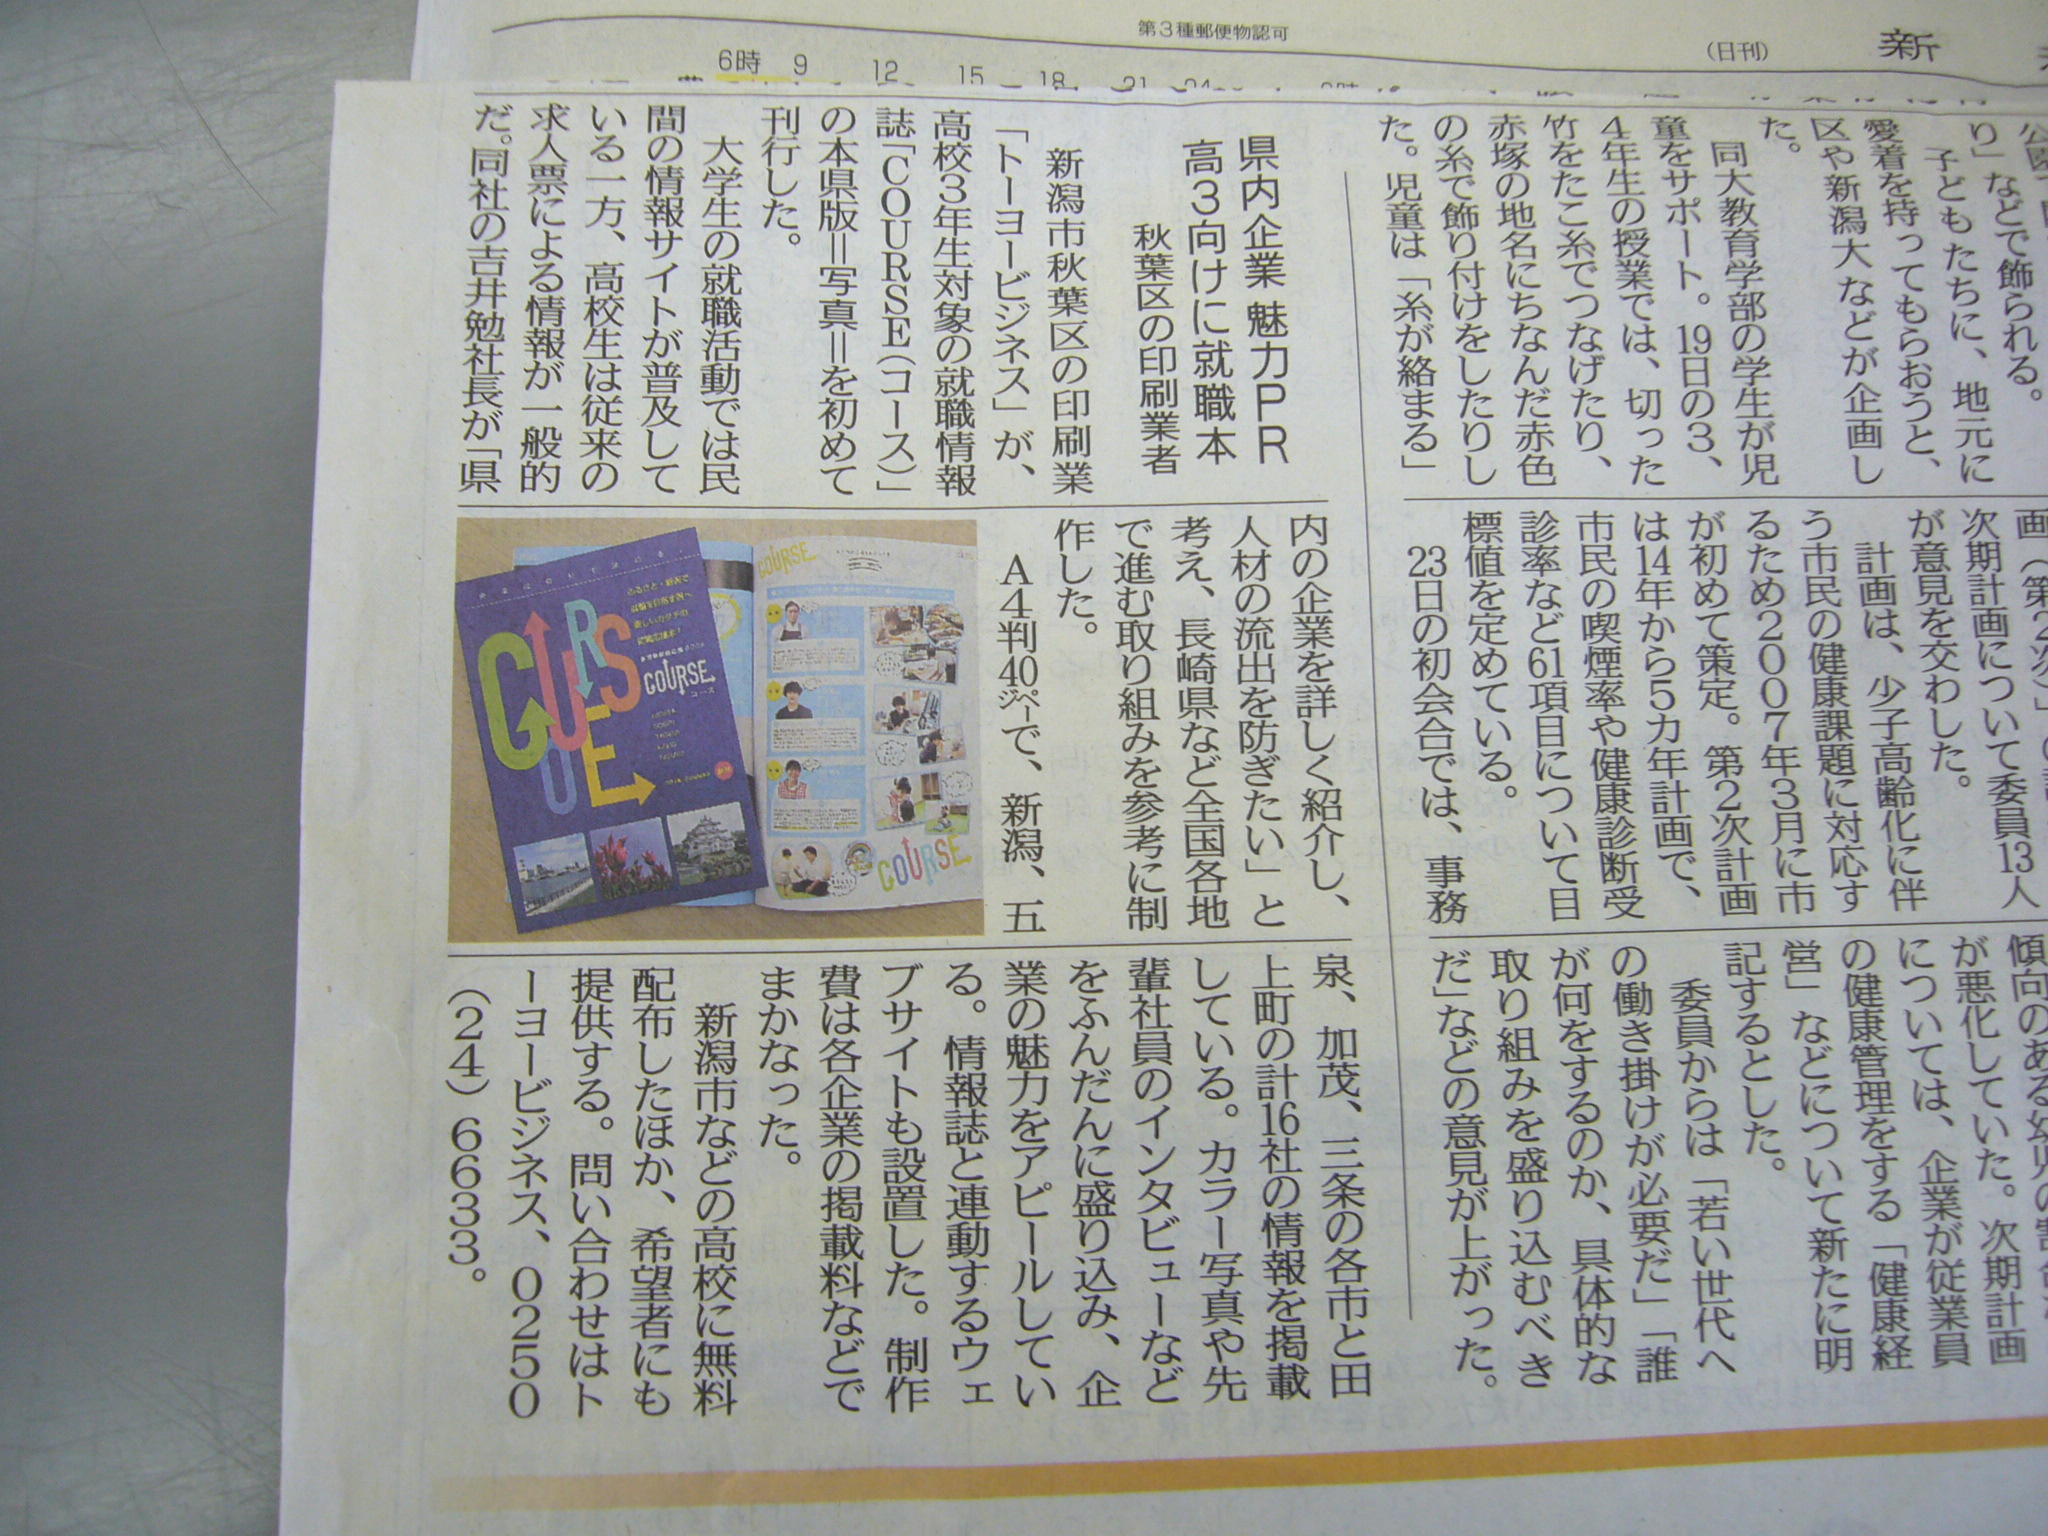 第3種郵便物認可
(日刊)
新
6時 9 12 15 18 21 24
公園
り」などで飾られる。
子どもたちに、地元に
愛着を持ってもらおうと、
区や新潟大などが企画し
た。
同大教育学部の学生が児
童をサポート。19日の3、
4年生の授業では、切った
竹をたこ糸でつなげたり、
赤塚の地名にちなんだ赤色
の糸で飾り付けをしたりし
た。児童は「糸が絡まる」
画(第2次)」の
次期計画について委員13人
が意見を交わした。
計画は、少子高齢化に伴
う市民の健康課題に対応す
るため2007年3月に市
が初めて策定。第2次計画
は14年から5カ年計画で、
市民の喫煙率や健康診断受
診率など61項目について目
標値を定めている。
23日の初会合では、事務
傾向のある幼児の割合な
が悪化していた。次期計画
については、企業が従業員
の健康管理をする「健康経
営」などについて新たに明
記するとした。
委員からは「若い世代へ
の働き掛けが必要だ」「誰
が何をするのか、具体的な
取り組みを盛り込むべき
だ」などの意見が上がった。
県内企業 魅力PR
高3向けに就職本
秋葉区の印刷業者
新潟市秋葉区の印刷業
「トーヨービジネス」が、
高校3年生対象の就職情報
誌「COURSE(コース)」
の本県版=写真=を初めて
刊行した。
大学生の就職活動では民
間の情報サイトが普及して
いる一方、高校生は従来の
求人票による情報が一般的
だ。同社の吉井勉社長が「県
内の企業を詳しく紹介し、
人材の流出を防ぎたい」と
考え、長崎県など全国各地
で進む取り組みを参考に制
作した。
A4判40ページで、新潟、五
COURSE
COURSE
コース
COURSE
COURSE
泉、加茂、三条の各市と田
上町の計16社の情報を掲載
している。カラー写真や先
輩社員のインタビューなど
をふんだんに盛り込み、企
業の魅力をアピールしてい
る。情報誌と連動するウェ
ブサイトも設置した。制作
費は各企業の掲載料などで
まかなった。
新潟市などの高校に無料
配布したほか、希望者にも
提供する。問い合わせはト
ーヨービジネス、0250
(24)6633。